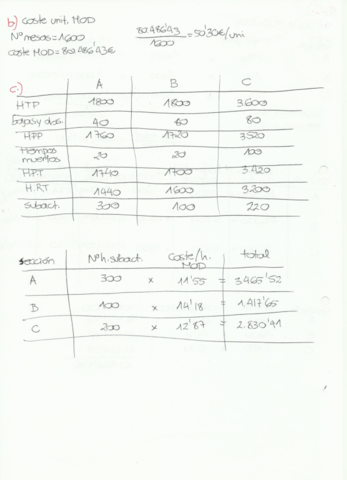 b) Coste unit. MOD
Nº mesas = 1600
80.486'43 / 1600 = 50'30€/uni
coste MOD = 80.486'43€
c) A B C
HTP 1800 1800 3.600
40 80
HPP 1760 1720 3520
tiempos muertos 20 20 100
HPT 1740 1700 3.420
H.RT 1440 1600 3.200
subact. 300 100 220
sección Nº h. subact. Coste/h. MOD total
A 300 x 11'55 = 3.465'52
B 100 x 14'18 = 1.417'65
C 200 x 12'87 = 2.830'91